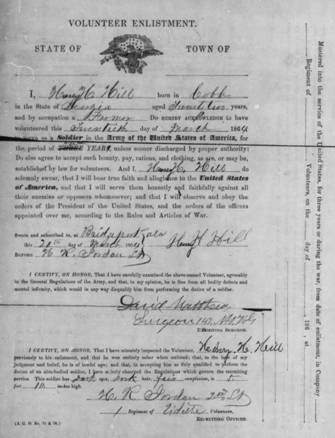 VOLUNTEER ENLISTMENT.
STATE OF
TOWN OF
I, Henry H. Hill born in Cobb
in the State of Georgia aged years,
and by occupation a Farmer Do HEREBY ACKNOWLEDGE to have
volunteered this day of March 1864
as a Soldier in the Army of the United States of America, for
the period of THREE YEARS, unless sooner discharged by proper authority:
Do also agree to accept such bounty, pay, rations, and clothing, as are, or may be,
established by law for volunteers. And I, Henry H. Hill do
solemnly swear, that I will bear true faith and allegiance to the United States
of America, and that I will serve them honestly and faithfully against all
their enemies or opposers whomsoever; and that I will observe and obey
the orders of the President of the United States, and the orders of the officers
appointed over me, according to the Rules and Articles of War.
Sworn and subscribed to, at Bridgeport Ala
this 20th day of March 1864
BEFORE H. R. Jordan Lt
Henry H Hill
I CERTIFY, ON HONOR, That I have carefully examined the above-named Volunteer, agreeably
to the General Regulations of the Army, and that, in my opinion, he is free from all bodily defects and
mental infirmity, which would in any way disqualify him from performing the duties of a soldier.
David
Surgeon
EXAMINING SURGEON.
I CERTIFY, ON HONOR, That I have minutely inspected the Volunteer, Henry H. Hill
previously to his enlistment, and that he was entirely sober when enlisted; that, to the best of my
judgment and belief, he is of lawful age; and that, in accepting him as duly qualified to perform the
duties of an able-bodied soldier, I have strictly observed the Regulations which govern the recruiting
service. This soldier has dark eyes, dark hair, fair complexion, is
feet inches high.
H. R. Jordan 2nd Lt
1 Regiment of Volunteers,
RECRUITING OFFICER.
(A. G. O. No. 74 & 76.)
Mustered into the service of the United States, for three years or during the war, from date of enlistment, in Company
Regiment of Volunteers, on the day of 186 , at